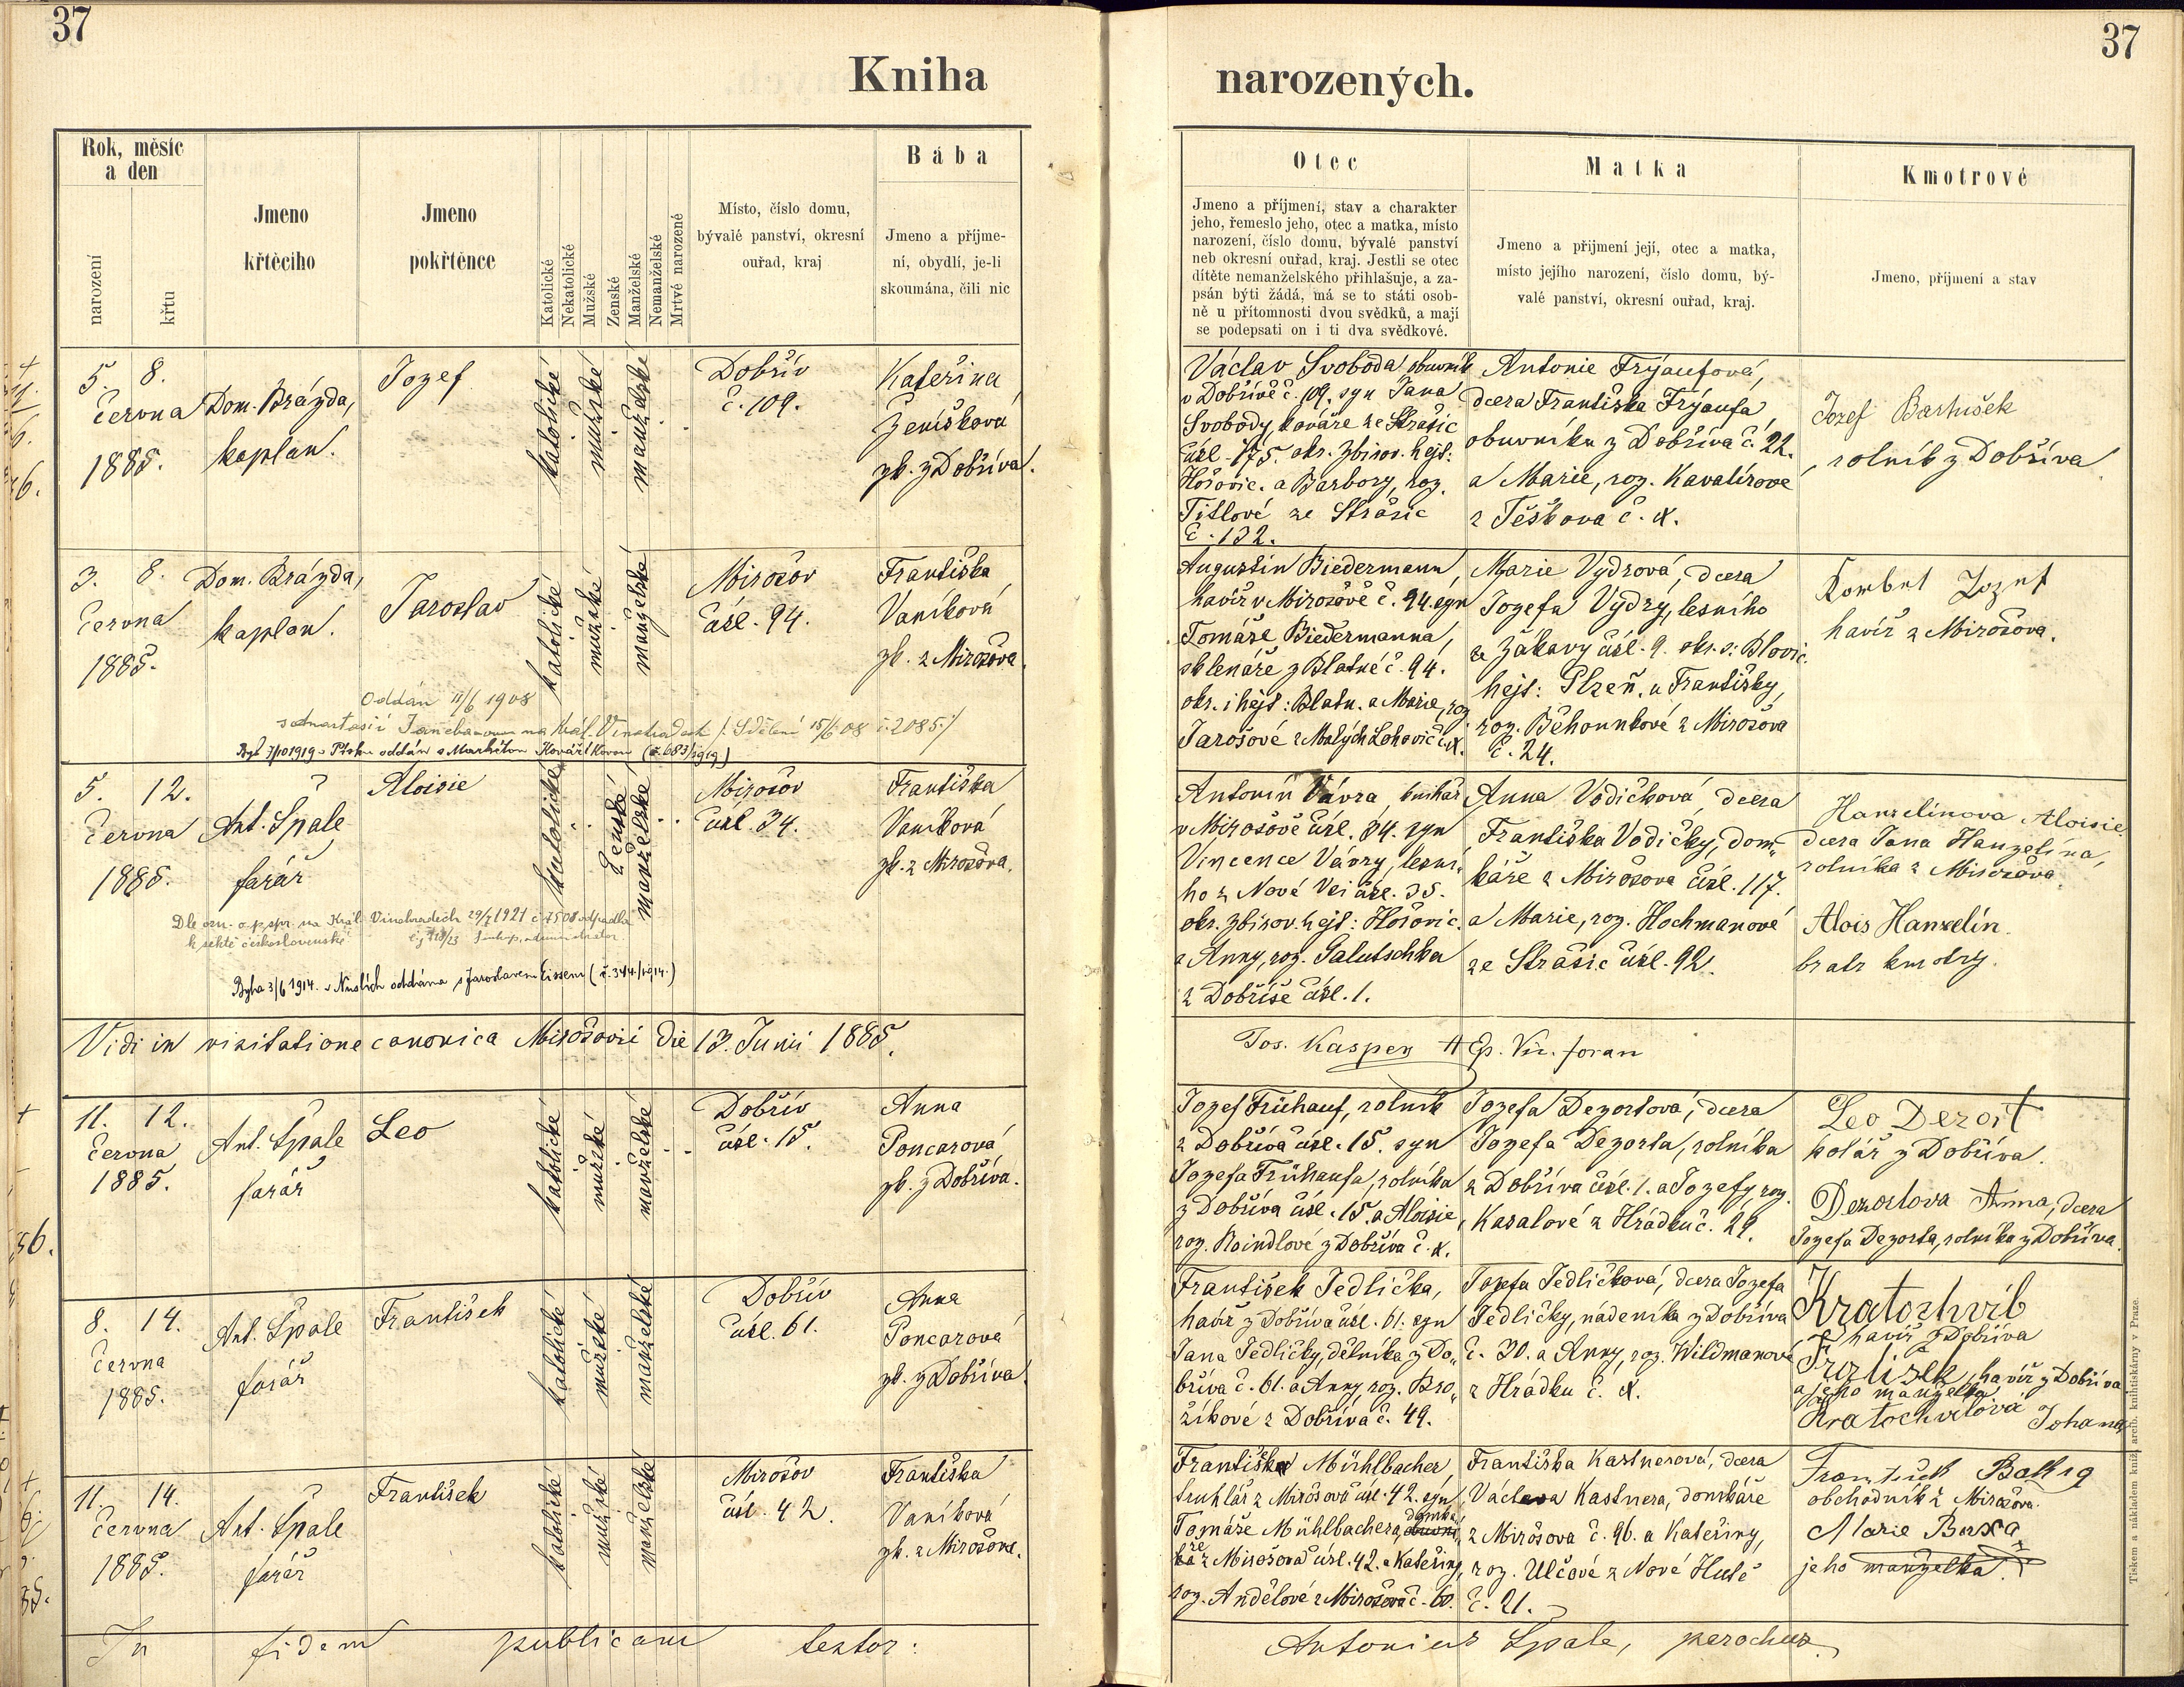 37
37
Kniha
narozených.
Rok, měsíc
a den
narození
křtu
Jmeno
křtěcího
Jmeno
pokřtěnce
Katolické
Nekatolické
Mužské
Ženské
Manželské
Nemanželské
Mrtvě narozené
Místo, číslo domu,
bývalé panství, okresní
ouřad, kraj
Bába
Jmeno a příjme-
ní, obydlí, je-li
skoumána, čili nic
Otec
Jmeno a příjmení, stav a charakter
jeho, řemeslo jeho, otec a matka, místo
narození, číslo domu, bývalé panství
neb okresní ouřad, kraj. Jestli se otec
dítěte nemanželského přihlašuje, a za-
psán býti žádá, má se to státi osob-
ně u přítomnosti dvou svědků, a mají
se podepsati on i ti dva svědkové.
Matka
Jmeno a přijmení její, otec a matka,
místo jejího narození, číslo domu, bý-
valé panství, okresní ouřad, kraj.
Kmotrové
Jmeno, příjmení a stav
5. 8.
Června
1885.
Dom. Brázda,
kaplan.
Jozef
katolické
mužské
manželské
Dobřív
č. 109.
Kateřina
Ženíšková
zk. z Dobříva.
Václav Svoboda, obuvník
v Dobřívě č. 109, syn Jana
Svobody, kováře ze Strašic
čísl. 175. okr. Zbirov. hejt:
Hořovic. a Barbory, roz.
Titlové ze Strašic
č. 132.
Antonie Frýaufová,
dcera Františka Frýaufa,
obuvníka z Dobříva č. 22.
a Marie, roz. Kavalírove
z Těškova č. x.
Jozef Bartušek
, rolník z Dobříva
3. 8.
Června
1885.
Dom. Brázda,
kaplan.
Jaroslav
katolické
mužské
manželské
Mirošov
čísl. 94.
Františka
Vaníková
zk. z Mirošova.
Augustin Biedermann,
havíř v Mirošově č. 94. syn
Tomáše Biedermanna,
sklenáře z Blatné č. 94.
okr. i hejt: Blatn. a Marie, roz.
Jarošové z Malých Lohovič č. x.
Marie Vydrová, dcera
Jozefa Vydry, lesního
ze Žákavy čísl. 9. okr. s: Blovic.
hejt: Plzeň. a Františky,
roz. Běhounkové z Mirošova
č. 24.
havíř z Mirošova.
Oddán 11/6 1908
na Král. Vinohradech /: Sdělení 15/6 08 č. 2085:/
Byl 7/10 1919 oddán s Markétou Kovaříkovou (č. 683/1919)
5. 12.
Června
1885.
Ant. Špale
farář
Aloisie
katolické
ženské
manželské
Mirošov
čísl. 34.
Františka
Vaníková
zk. z Mirošova.
Antonín Vávra,
v Mirošově čísl. 34. syn
Vincence Vávry, lesní-
ho z Nové Vsi čísl. 35.
okr. Zbirov. hejt: Hořovic.
a Anny, roz. Galutschka
z Dobříše čísl. 1.
Anna Vodičková, dcera
Františka Vodičky, dom-
káře z Mirošova čísl. 117.
a Marie, roz. Hochmanové
ze Strašic čísl. 92.
Hanzelinova Aloisie
dcera Jana Hanzelína,
rolníka z Mirošova.
Alois Hanzelín.
bratr kmotry.
Dle ozn. o. p. spr. na Král. Vinohradech 29/7 1921 č. 7508 odpadla
k sektě československé
Byla 3/6 1914. v Nuslích oddána s Jaroslavem Eissem (č. 344./1914.)
Vidi in visitatione canonica Mirošovii die 13. Junii 1885.
Jos. Kasper Ep. Vic. foran
11. 12.
Června
1885.
Ant. Špale
farář
Leo
katolické
mužské
manželské
Dobřív
čísl. 15.
Anna
Poncarová
zk. z Dobříva.
Jozef Frühauf, rolník
z Dobříva čísl. 15. syn
Jozefa Frühaufa, rolníka
z Dobříva čísl. 15. a Aloisie,
roz. Reindlové z Dobříva č. x.
Jozefa Dezortová, dcera
Jozefa Dezorta, rolníka
z Dobříva čísl. 1. a Jozefy, roz.
Kasalové z Hrádku č. 29.
Leo Dezort
kolář z Dobříva.
Dezortova Anna, dcera
Jozefa Dezorta, rolníka z Dobříva.
8. 14.
Června
1885.
Ant. Špale
farář
František
katolické
mužské
manželské
Dobřív
čísl. 61.
Anna
Poncarová
zk. z Dobříva.
František Jedlička,
havíř z Dobříva čísl. 61. syn
Jana Jedličky, dělníka z Do-
bříva č. 61. a Anny, roz. Bro-
žíkové z Dobříva č. 49.
Jozefa Jedličková, dcera Jozefa
Jedličky, nádeníka z Dobříva
č. 30. a Anny, roz. Wildmanové
z Hrádku č. x.
Kratochvíl
havíř z Dobříva
, havíř z Dobříva
a jeho manželka
Kratochvilova Johana
11. 14.
Června
1885.
Ant. Špale
farář
František
katolické
mužské
manželské
Mirošov
čísl. 42.
Františka
Vaníková
zk. z Mirošova.
František Mühlbacher,
truhlář z Mirošova čísl. 42. syn
Tomáše Mühlbachera, domká-
ře z Mirošova čísl. 42. a Kateřiny,
roz. Andělové z Mirošova č. 60.
Františka Kastnerová, dcera
Václava Kastnera, domkáře
z Mirošova č. 96. a Kateřiny,
roz. Ulčové z Nové Hutě
č. 21.
obchodník z Mirošova.
Marie Baxa
jeho manželka.
In fidem publicam testor:
Antonius Špale, parochus
Tiskem a nákladem kníž. arcib. knihtiskárny v Praze.